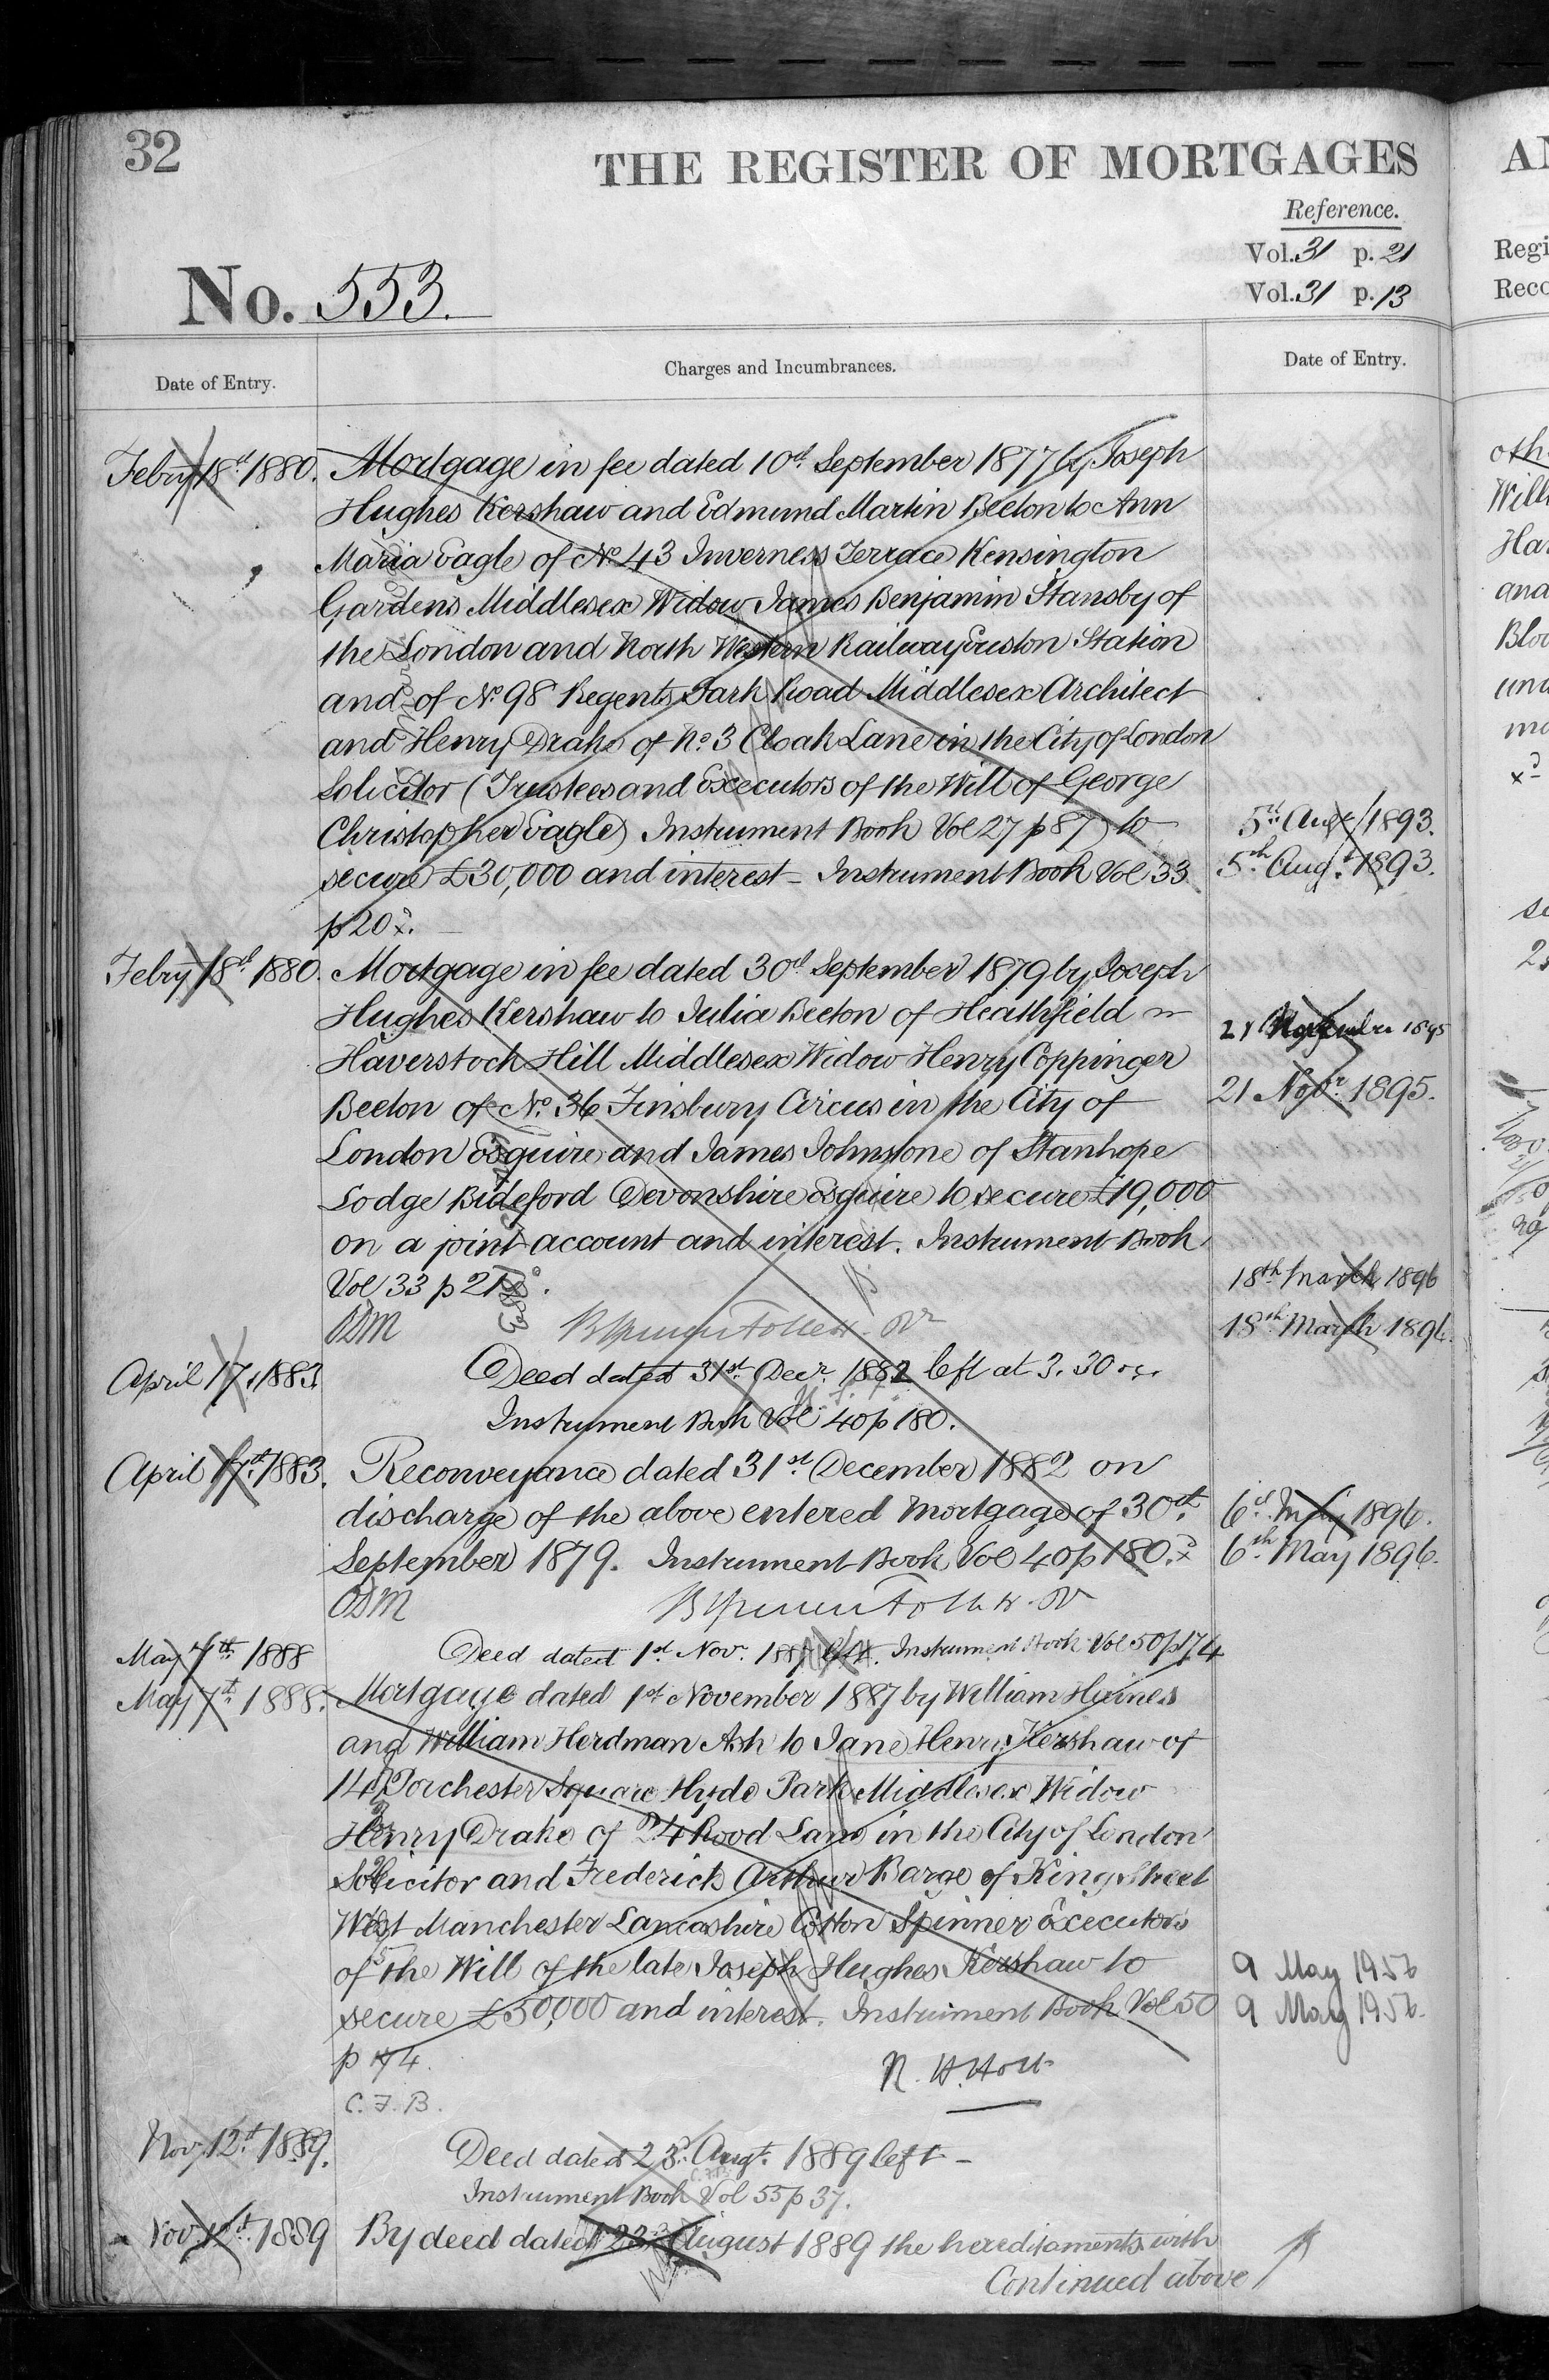 32
THE REGISTER OF MORTGAGES
Reference.
Vol. 31 p. 21
Vol. 31 p. 13
No. 553.
Date of Entry.
Charges and Incumbrances.
Date of Entry.
Febry 18th 1880. Mortgage in fee dated 10th September 1877 by Joseph
Hughes Kershaw and Edmund Martin Beeton to Ann
Maria Eagle of No. 43 Inverness Terrace Kensington
Gardens Middlesex Widow James Benjamin Stansby of
the London and North Western Railway Euston Station
and of No. 98 Regents Park Road Middlesex Architect
and Henry Drake of No. 3 Cloak Lane in the City of London
Solicitor (Trustees and Executors of the Will of George
Christopher Eagle) Instrument Book Vol 27 p 87) to
secure £30,000 and interest - Instrument Book Vol 33
p 20
5th Augt 1893.
5th Augt 1893.
Febry 18th 1880. Mortgage in fee dated 30th September 1879 by Joseph
Hughes Kershaw to Julia Beeton of Heathfield
Haverstock Hill Middlesex Widow Henry Coppinger
Beeton of No. 36 Finsbury Circus in the City of
London Esquire and James Johnstone of Stanhope
Lodge Bideford Devonshire Esquire to secure £19,000
on a joint account and interest. Instrument Book
Vol 33 p 21
21 November 1895
21 Novr. 1895.
18th March 1896
18th March 1896.
ODM
April 17, 1883. Deed dated 31st Decr. 1882 left at 3.30
Instrument Book Vol 40 p 180.
April 17th 1883. Reconveyance dated 31st December 1882 on
discharge of the above entered Mortgage of 30th
September 1879. Instrument Book Vol 40 p 180.
6th May 1896.
6th May 1896.
ODM
May 7th 1888 Deed dated 1st Nov. 1887 left. Instrument Book Vol 50 p 174
May 7th 1888. Mortgage dated 1st November 1887 by William Haines
and William Herdman Ash to Jane Henry Kershaw of
14 Porchester Square Hyde Park Middlesex Widow
Henry Drake of 24 Rood Lane in the City of London
Solicitor and Frederick Arthur Barge of King Street
West Manchester Lancashire Cotton Spinner Executors
of the Will of the late Joseph Hughes Kershaw to
secure £50,000 and interest. Instrument Book Vol 50
p 174.
9 May 1956
9 May 1956.
C. F. B.
Nov 12th 1889. Deed dated 23rd Augt. 1889 left -
Instrument Book Vol 55 p 37.
Nov 12th 1889 By deed dated 23rd August 1889 the hereditaments with
Continued above